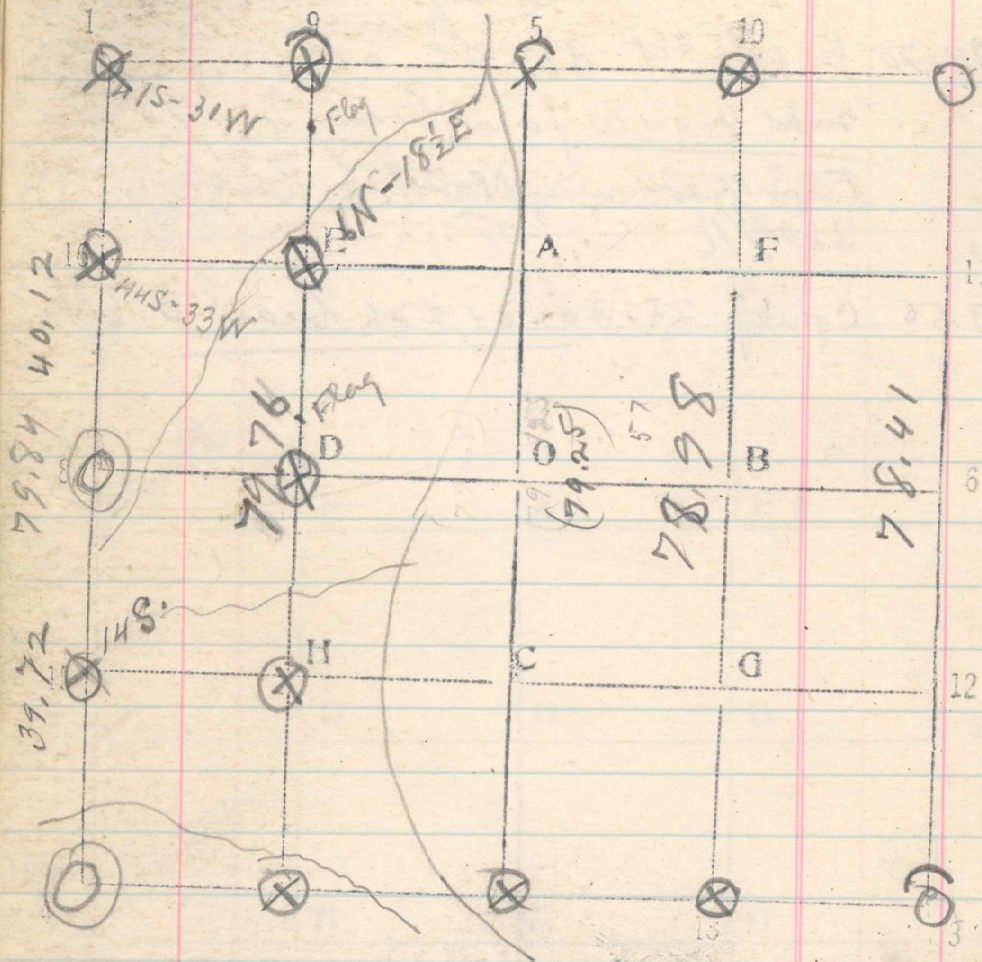 1 9 5 10
41S-31W Flag
6N-18½E
16 E A F 1
44S-33W
40.12
79.84
79.76 Flag
D O B 6
(79.25) 57 78.98 78.41
14S.
39.72
H C G 12
13 3